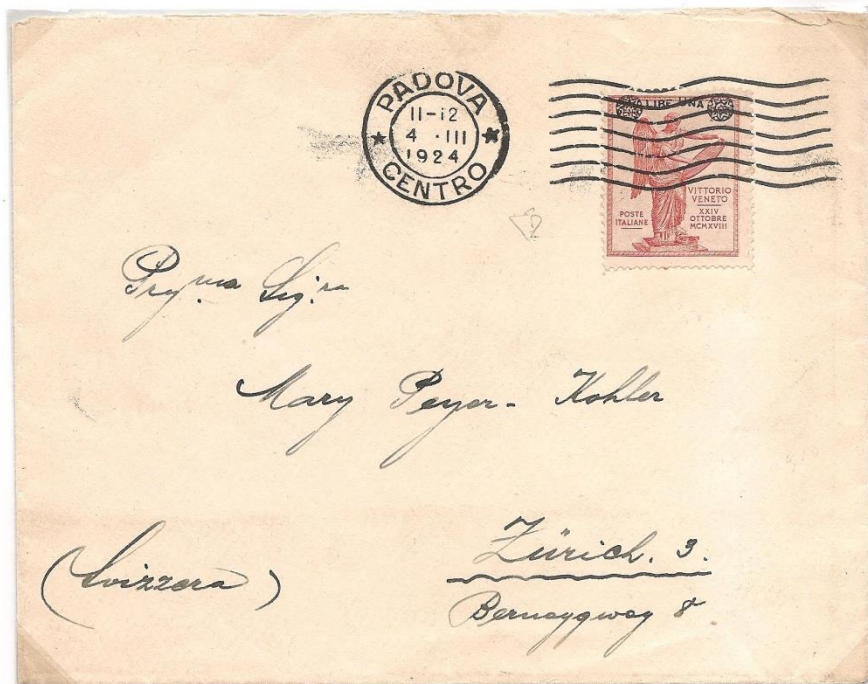 PADOVA
11-12
4 · III
1924
CENTRO
LIRE UNA
VITTORIO
VENETO
XXIV
OTTOBRE
MCMXVIII
POSTE
ITALIANE
Sig.ra
Mary Peyer - Kohler
Zürich. 3.
(Svizzera)
8